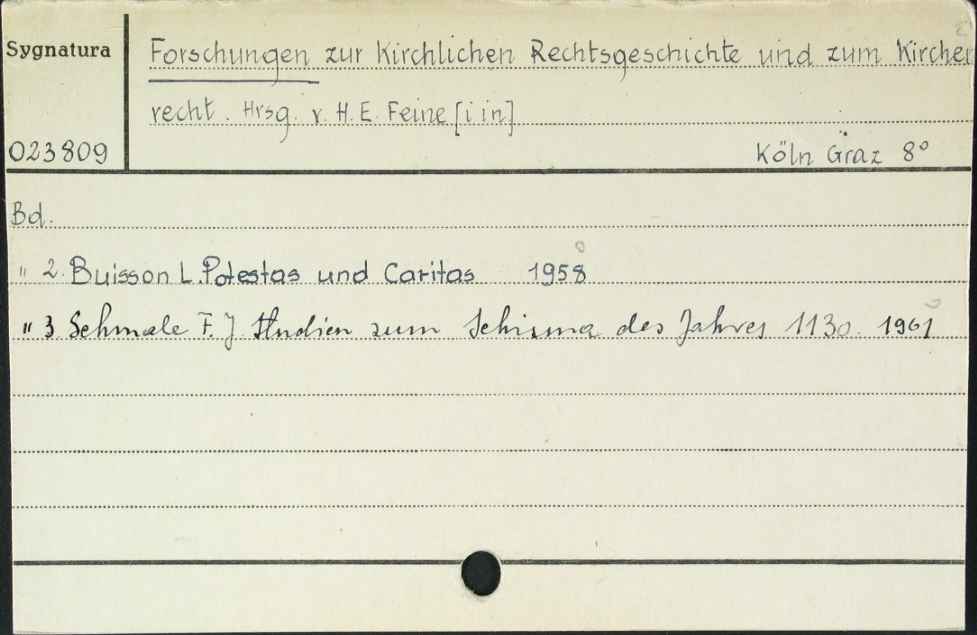 Sygnatura
Forschungen zur Kirchlichen Rechtsgeschichte und zum Kirchen
recht. Hrsg. v. H. E. Feine [i in]
023809
Köln Graz 8°
Bd.
" 2. Buisson L. Potestas und Caritas 1958
" 3. Schmale F. J. Studien zum Schisma des Jahres 1130. 1961